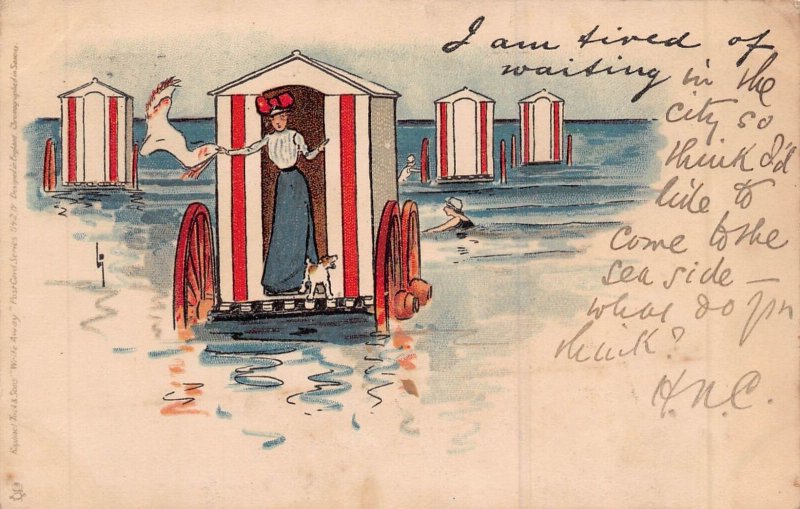 I am tired of
waiting in the
city so
think I'd
like to
come to the
sea side —
what do you
think?
H. N. C.
Raphael Tuck & Sons' "Write Away" Post Card Series 
Designed in England Chromographed in Saxony